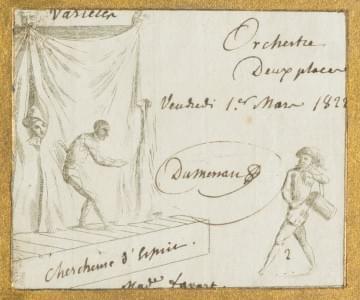 Varietés
Orchestre
Deux places
Vendredi 1.er Mars 1822
Dumersan
Chercheuse d'Esprit.
2
Made. Favart.